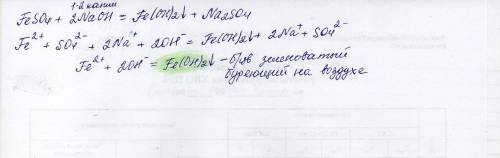 1-2 капли
FeSO₄ + 2NaOH = Fe(OH)₂↓ + Na₂SO₄
Fe²⁺ + SO₄²⁻ + 2Na⁺ + 2OH⁻ = Fe(OH)₂↓ + 2Na⁺ + SO₄²⁻
Fe²⁺ + 2OH⁻ = Fe(OH)₂↓ – бл-зеленоватый
буреющий на воздухе